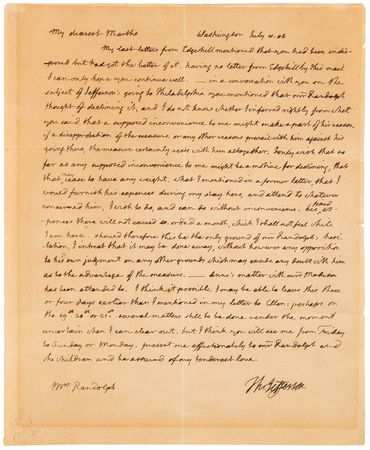 My dearest Martha Washington July 11. 06
My last letter from Edgehill mentioned that you had been indis-
-posed but had got the better of it. having no letter from Edgehill by this mail
I can only hope you continue well. — in a conversation with you on the
subject of Jefferson's going to Philadelphia you mentioned that mr Randolph
thought of declining it, and I do not know whether I inferred rightly from what
you said that a supposed inconvenience to me might make a part of his reason.
if a disapprobation of the measure or any other reasons prevail with him against his
going there, the measure certainly rests with him altogether. I only wish that so
far as any supposed inconvenience to me might be a motive for declining, that
that may cease to have any weight. what I mentioned in a former letter, that I
would furnish his expences during my stay here, and attend to whatever
concerned him, I wish to do, and can do without inconvenience. his ex-
-pences there will not exceed a month, which I shall not feel while
I am here. should therefore this be the only ground of mr Randolph's hesi-
-tation, I intreat that it may be done away, without however any opposition
to his own judgment on any other grounds which may excite any doubt with him
as to the advantage of the measure. — Anne's matter with mrs Madison
has been attended to. I think it possible I may be able to leave this three
or four days earlier than I mentioned in my letter to Ellen: perhaps on
the 19th 20th or 21st. several matters still to be done render the moment
uncertain when I can clear out, but I think you will see me from Friday
to Sunday or Monday. present me affectionately to mr Randolph and
the children and be assured of my tenderest love.
Mrs Randolph. Th: Jefferson